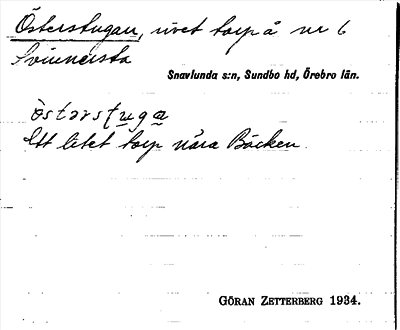 Österstugan, rivet torp å nr 6
Svinnersta
Snavlunda s:n, Sundbo hd, Örebro län.
östərstuga
Ett litet torp nära Bäcken.
GÖRAN ZETTERBERG 1934.